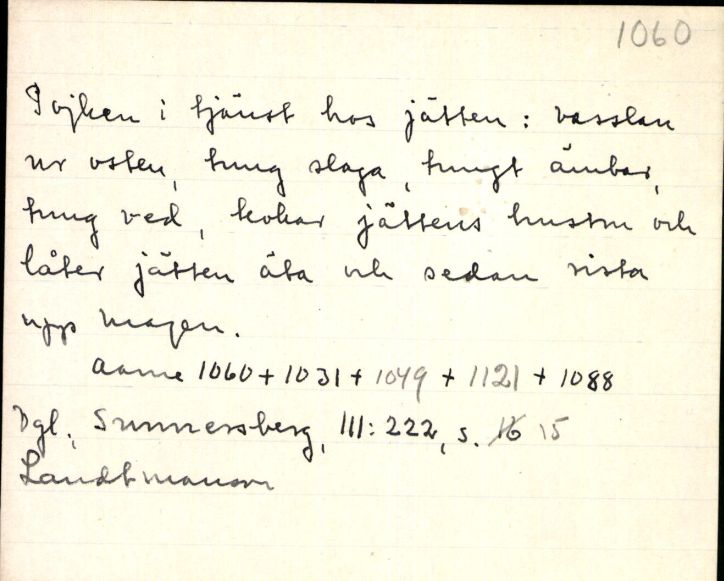 1060
Pojken i tjänst hos jätten: vasslan
ur osten, tung slaga, tungt ämbar,
tung ved, kokar jättens hustru och
låter jätten äta och sedan rista
upp magen.
Aarne 1060 + 1031 + 1049 + 1121 + 1088
Vgl., Sunnersberg, III: 222, s. 16 15
Landtmanson